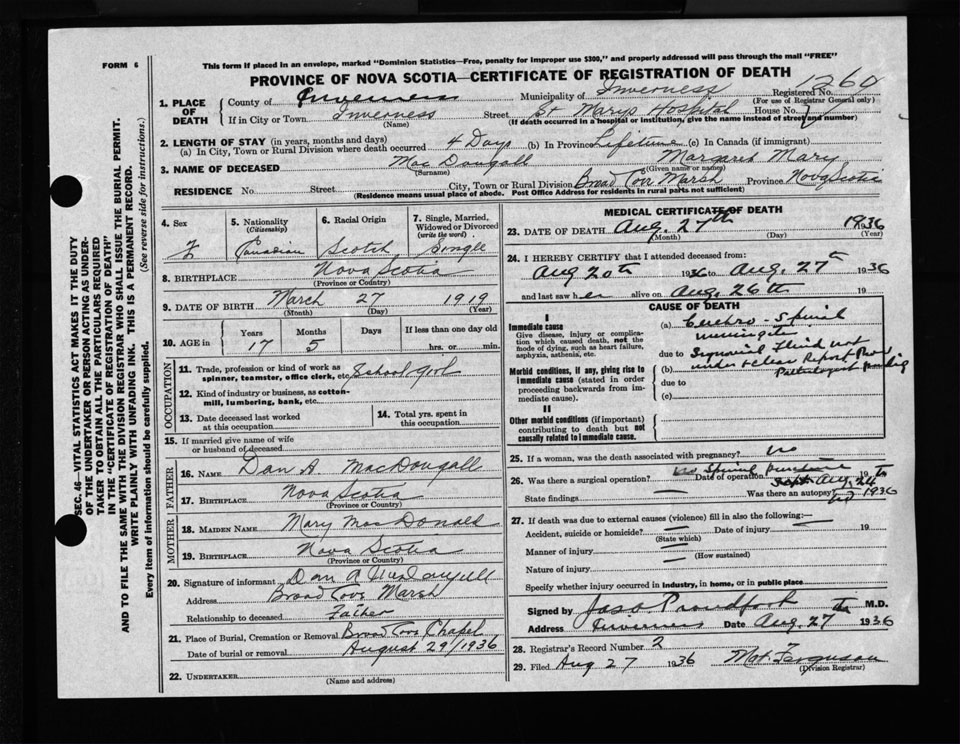 FORM 6
This form if placed in an envelope, marked "Dominion Statistics—Free, penalty for improper use $300," and properly addressed will pass through the mail "FREE"
PROVINCE OF NOVA SCOTIA—CERTIFICATE OF REGISTRATION OF DEATH
SEC. 46—VITAL STATISTICS ACT MAKES IT THE DUTY
OF THE UNDERTAKER OR PERSON ACTING AS UNDER-
TAKER TO OBTAIN ALL THE PARTICULARS REQUIRED
IN THE "CERTIFICATE OF REGISTRATION OF DEATH"
AND TO FILE THE SAME WITH THE DIVISION REGISTRAR WHO SHALL ISSUE THE BURIAL PERMIT.
WRITE PLAINLY WITH UNFADING INK. THIS IS A PERMANENT RECORD.
Every item of information should be carefully supplied. (See reverse side for instructions.)
1. PLACE OF DEATH County of Inverness Municipality of Inverness Registered No. 1260
(For use of Registrar General only)
If in City or Town Inverness Street St Marys Hospital House No.
(Name) (If death occurred in a hospital or institution, give the name instead of street and number)
2. LENGTH OF STAY (in years, months and days)
(a) In City, Town or Rural Division where death occurred 4 Days (b) In Province Lifetime (c) In Canada (if immigrant)
3. NAME OF DECEASED MacDougall Margaret Mary
(Surname) (Given name or names)
RESIDENCE No. Street City, Town or Rural Division Broad Cove Marsh Province Nova Scotia
(Residence means usual place of abode. Post Office Address for residents in rural parts not sufficient)
4. Sex F
5. Nationality (Citizenship) Canadian
6. Racial Origin Scotch
7. Single, Married, Widowed or Divorced (write the word) Single
8. BIRTHPLACE Nova Scotia
(Province or Country)
9. DATE OF BIRTH March 27 1919
(Month) (Day) (Year)
10. AGE in Years Months Days If less than one day old
17 5 hrs. or min.
OCCUPATION
11. Trade, profession or kind of work as spinner, teamster, office clerk, etc. School girl
12. Kind of industry or business, as cotton-mill, lumbering, bank, etc.
13. Date deceased last worked at this occupation
14. Total yrs. spent in this occupation
15. If married give name of wife or husband of deceased
FATHER
16. NAME Dan A. MacDougall
17. BIRTHPLACE Nova Scotia
(Province or Country)
MOTHER
18. MAIDEN NAME Mary MacDonald
19. BIRTHPLACE Nova Scotia
(Province or Country)
20. Signature of informant Dan A MacDougall
Address Broad Cove Marsh
Relationship to deceased Father
21. Place of Burial, Cremation or Removal Broad Cove Chapel
Date of burial or removal August 29/1936
22. UNDERTAKER
(Name and address)
MEDICAL CERTIFICATE OF DEATH
23. DATE OF DEATH Aug. 27th 1936
(Month) (Day) (Year)
24. I HEREBY CERTIFY that I attended deceased from:
Aug 20th 1936 to Aug. 27th 1936
and last saw her alive on Aug. 26th 19
CAUSE OF DEATH
I
Immediate cause
Give disease, injury or complication which caused death, not the mode of dying, such as heart failure, asphyxia, asthenia, etc.
(a) Cerebro-Spinal
due to
Morbid conditions, if any, giving rise to immediate cause (stated in order proceeding backwards from immediate cause).
(b) Report from Pathologist pending
due to
(c)
II
Other morbid conditions (if important) contributing to death but not causally related to immediate cause.
25. If a woman, was the death associated with pregnancy? no
26. Was there a surgical operation? no Spinal puncture Date of operation Aug. 24th 1936
State findings Was there an autopsy? no
27. If death was due to external causes (violence) fill in also the following:—
Accident, suicide or homicide? Date of injury 19
(State which)
Manner of injury
(How sustained)
Nature of injury
Specify whether injury occurred in industry, in home, or in public place
Signed by Jas. A Proudfoot M.D.
Address Inverness Date Aug. 27th 1936
28. Registrar's Record Number 2
29. Filed Aug 27 1936 Ferguson
(Division Registrar)